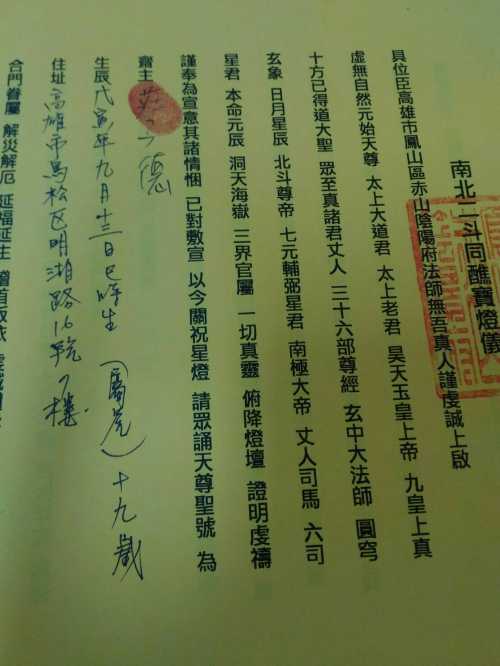 南北二斗同醮寶燈儀
具位臣高雄市鳳山區赤山陰陽府法師無吾真人謹虔誠上啟
虛無自然元始天尊 太上大道君 太上老君 昊天玉皇上帝 九皇上真
十方已得道大聖 眾至真諸君丈人 三十六部尊經 玄中大法師 圓穹
玄象 日月星辰 北斗尊帝 七元輔弼星君 南極大帝 丈人司馬 六司
星君 本命元辰 洞天海嶽 三界官屬 一切真靈 俯降燈壇 證明虔禱
謹奉為宣意其諸情悃 已對敷宣 以今關祝星燈 請眾誦天尊聖號 為
齋主 德
生辰 戊寅年九月十三日巳時生 十九歲
住址 高雄市鳥松区明湖路16號7樓
合門眷屬 解災解厄 延福延生 稽首皈依